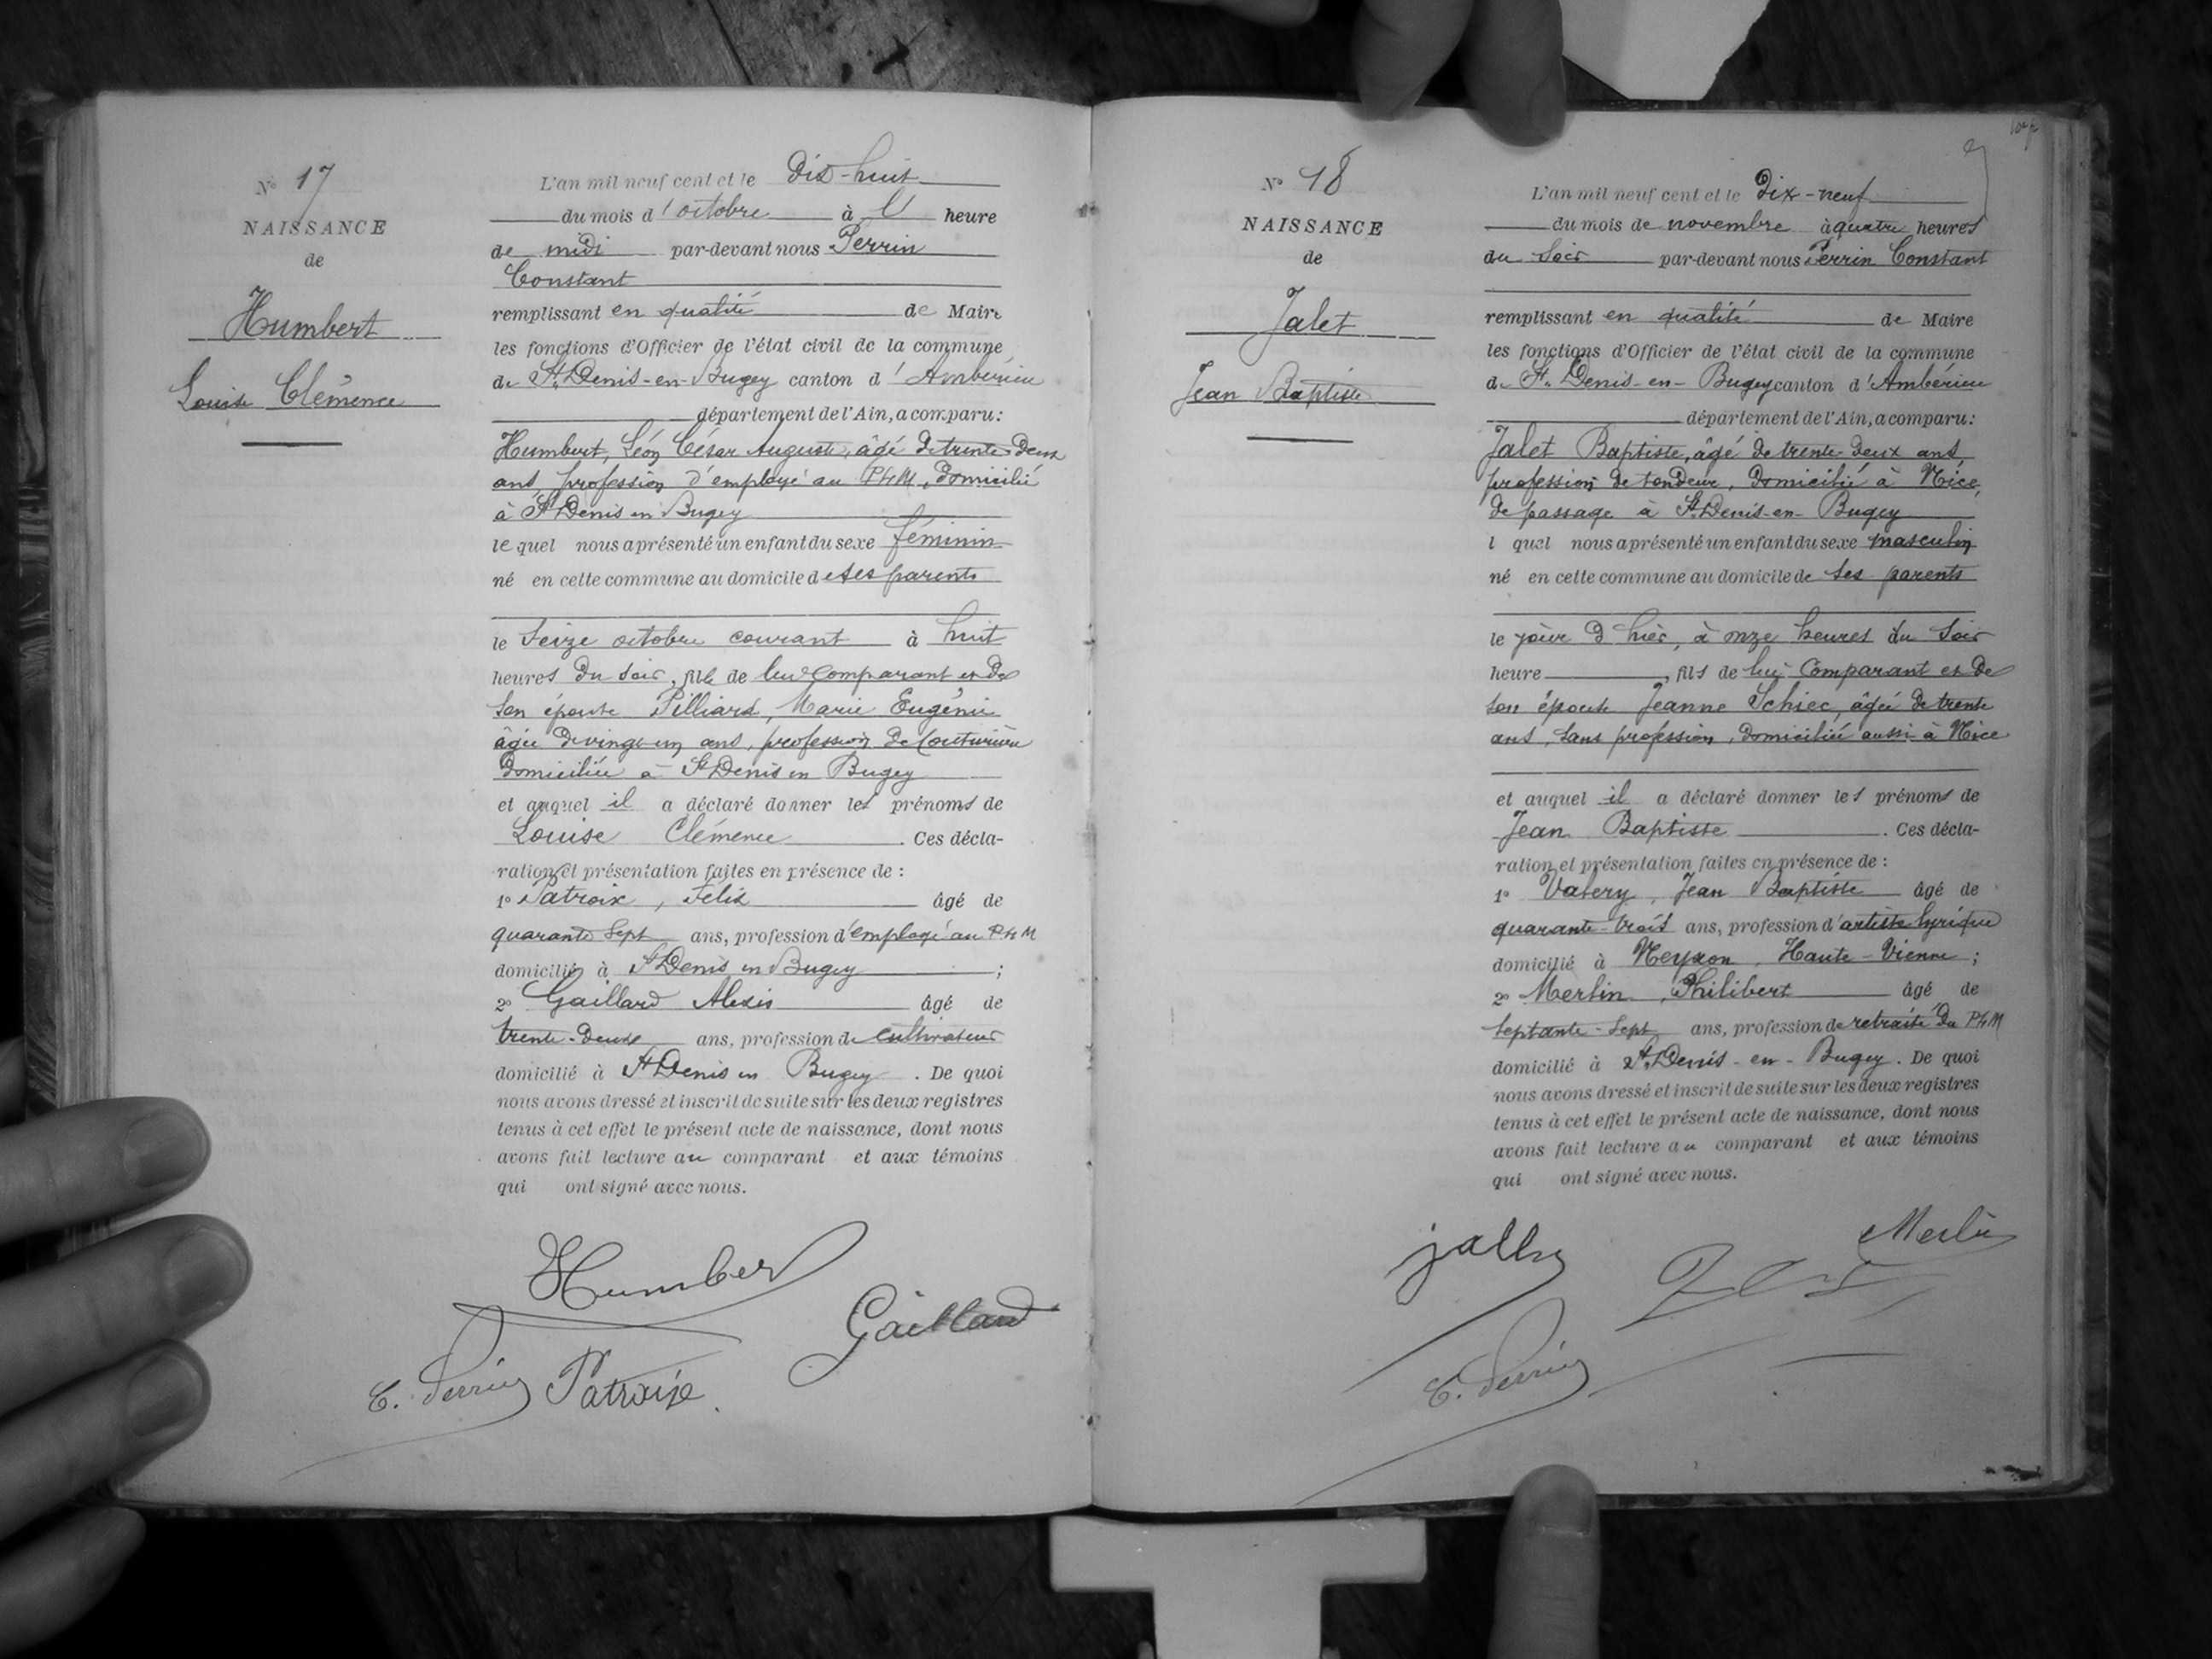 N° 17
NAISSANCE
de
Humbert
Louise Clémence
L'an mil neuf cent et le Dix-huit
du mois d'octobre à l' heure
de midi par-devant nous Perrin
Constant
remplissant en qualité de Maire
les fonctions d'Officier de l'état civil de la commune
de St Denis-en-Bugey canton d'Ambérieu
département de l'Ain, a comparu:
Humbert, Léon César Auguste, âgé de trente deux
ans, profession d'employé au PLM, domicilié
à St Denis en Bugey
le quel nous a présenté un enfant du sexe féminin
né en cette commune au domicile de ses parents
le Seize octobre courant à huit
heures du soir, fille de lui comparant et de
son épouse Pilliard, Marie Eugénie
âgée de vingt-un ans, profession de Couturière
domiciliée à St Denis en Bugey
et auquel il a déclaré donner les prénoms de
Louise Clémence. Ces décla-
ration et présentation faites en présence de :
1° Patroix, Félix âgé de
quarante Sept ans, profession d'employé au PLM
domicilié à St Denis en Bugey ;
2° Gaillard Alexis âgé de
trente-deux ans, profession de cultivateur
domicilié à St Denis en Bugey. De quoi
nous avons dressé et inscrit de suite sur les deux registres
tenus à cet effet le présent acte de naissance, dont nous
avons fait lecture au comparant et aux témoins
qui ont signé avec nous.
Humbert
Gaillard
C. Perrin Patroix.
N° 18
NAISSANCE
de
Jalet
Jean Baptiste
L'an mil neuf cent et le Dix-neuf
du mois de novembre à quatre heures
du soir par-devant nous Perrin Constant
remplissant en qualité de Maire
les fonctions d'Officier de l'état civil de la commune
de St Denis-en-Bugey canton d'Ambérieu
département de l'Ain, a comparu:
Jalet Baptiste, âgé de trente-deux ans,
profession de tondeur, domicilié à Nice,
de passage à St Denis-en-Bugey
l quel nous a présenté un enfant du sexe masculin
né en cette commune au domicile de ses parents
le jour d'hier, à onze heures du soir
heure, fils de lui comparant et de
son épouse Jeanne Schiec, âgée de trente
ans, sans profession, domiciliée aussi à Nice
et auquel il a déclaré donner les prénoms de
Jean Baptiste. Ces décla-
ration et présentation faites en présence de :
1° Valery, Jean Baptiste âgé de
quarante-trois ans, profession d'artiste lyrique
domicilié à Neyxon, Haute-Vienne ;
2° Merlin, Philibert âgé de
septante-sept ans, profession de retraité du PLM
domicilié à St Denis-en-Bugey. De quoi
nous avons dressé et inscrit de suite sur les deux registres
tenus à cet effet le présent acte de naissance, dont nous
avons fait lecture au comparant et aux témoins
qui ont signé avec nous.
Merlin
C. Perrin